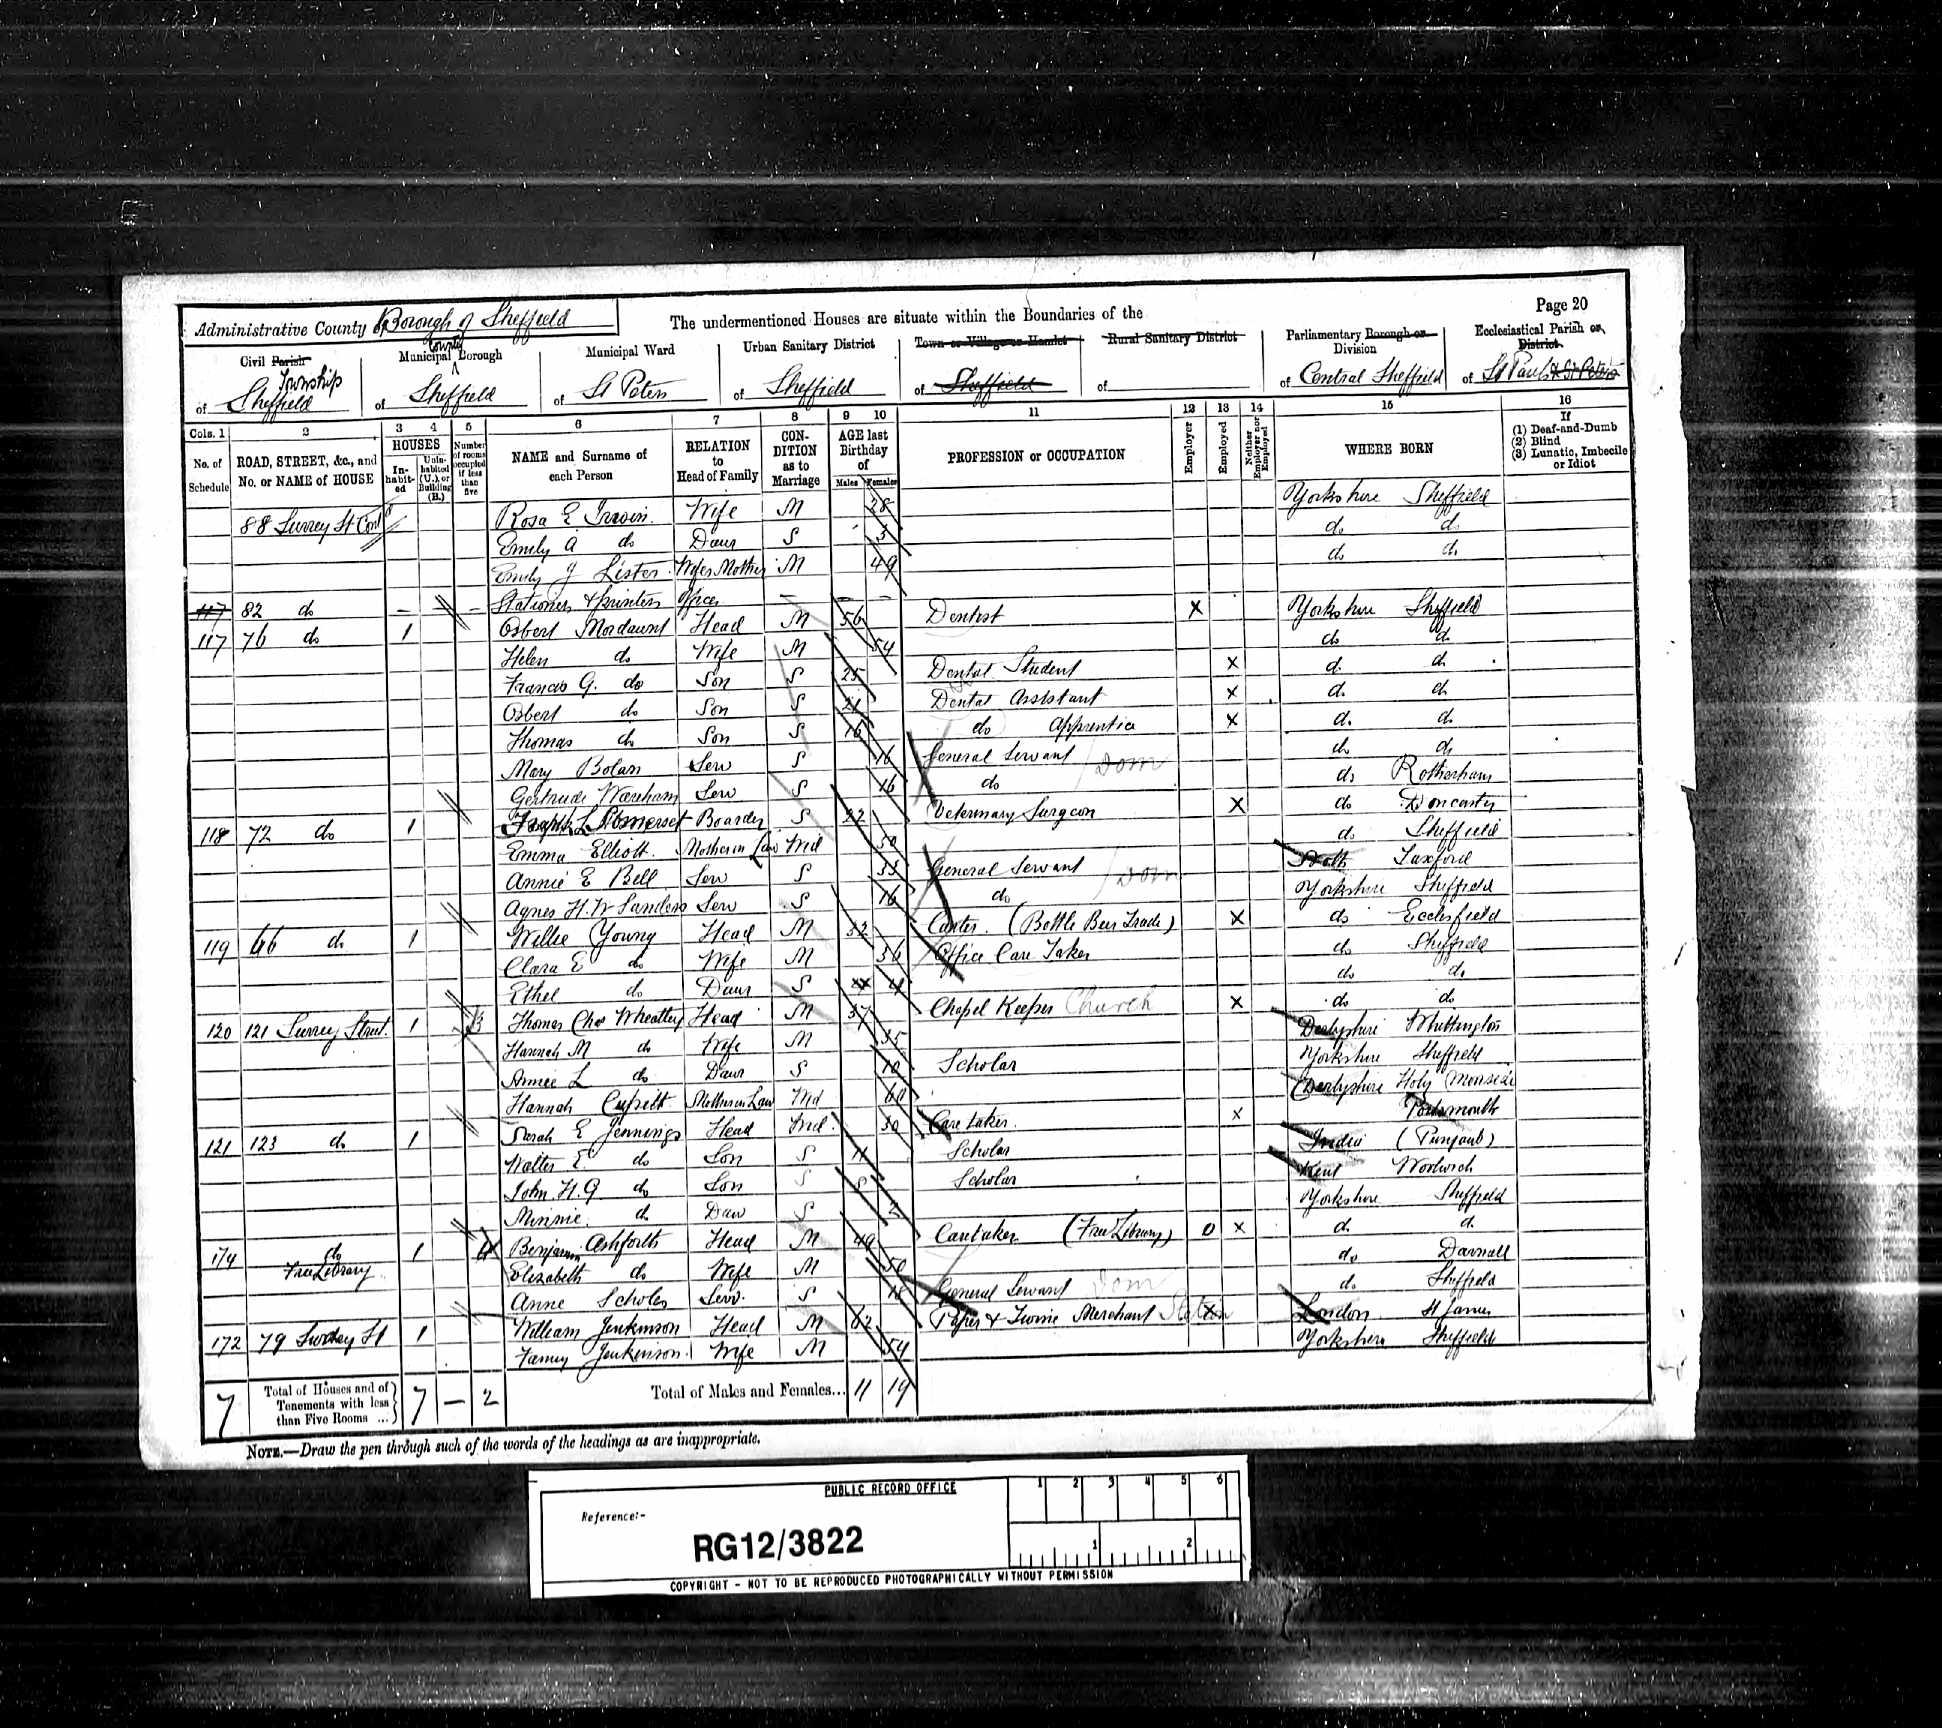 Page 20
Administrative County of Borough of Sheffield
The undermentioned Houses are situate within the Boundaries of the
Civil Parish Township of Sheffield
Municipal County Borough of Sheffield
Municipal Ward of St Peters
Urban Sanitary District of Sheffield
Town or Village or Hamlet of Sheffield
Rural Sanitary District of
Parliamentary Borough or Division of Central Sheffield
Ecclesiastical Parish or District of St Pauls & St Peters
Cols. 1 2 3 4 5 6 7 8 9 10 11 12 13 14 15 16
No. of Schedule
ROAD, STREET, &c., and No. or NAME of HOUSE
HOUSES
In-habit-ed
Unin-habited (U.), or Building (B.)
Number of rooms occupied if less than five
NAME and Surname of each Person
RELATION to Head of Family
CON-DITION as to Marriage
AGE last Birthday of
Males Females
PROFESSION or OCCUPATION
Employer
Employed
Neither Employer nor Employed
WHERE BORN
If
(1) Deaf-and-Dumb
(2) Blind
(3) Lunatic, Imbecile or Idiot
88 Surrey St Cont Rosa E Irwin Wife M 28 Yorkshire Sheffield
Emily A do Daur S 5 do do
Emily J Lister Wifes Mother M 49 do do
117 82 do — — Stationers & printers Offices — — —
117 76 do 1 Osbert Mordaunt Head M 56 Dentist X Yorkshire Sheffield
Helen do Wife M 54 do do
Francis G. do Son S 25 Dental Student X do do
Osbert do Son S 21 Dental Assistant X do do
Thomas do Son S 16 do Apprentice X do do
Mary Bolan Serv S 16 General Servant Dom do do
Gertrude Wareham Serv S 16 do do Rotherham
118 72 do 1 Joseph Somerset Boarder S 22 Veterinary Surgeon X do Doncaster
Emma Elliott Mother in Law Wd 50 do Sheffield
Annie E Bell Serv S 35 General Servant Dom Notts Tuxford
Agnes H. W Sanders Serv S 16 do Yorkshire Sheffield
119 66 do 1 Willie Young Head M 32 Carter (Bottle Beer Trade) X do Ecclesfield
Clara E do Wife M 36 Office Care Taker do Sheffield
Ethel do Daur S 4 do do
120 121 Surrey Street 1 3 Thomas Chas Wheatley Head M 37 Chapel Keeper Church X do do
Hannah M do Wife M 35 Derbyshire Whittington
Annie L do Daur S 10 Scholar Yorkshire Sheffield
Hannah Mother in Law Wd 60 Derbyshire
121 123 do 1 Sarah E Jennings Head Wd. 30 Care taker X Portsmouth
Walter E. do Son S 11 Scholar India (Punjaub)
John H. G do Son S 8 Scholar Kent Woolwich
Minnie do Daur S 2 Yorkshire Sheffield
174 do Free Library 1 4 Benjamin Ashforth Head M 49 Caretaker (Free Library) 0 X do do
Elizabeth do Wife M 50 do Darnall
Anne Scholes Serv. S 18 General Servant Dom do Sheffield
172 79 Surrey St 1 William Jenkinson Head M 62 Paper & Twine Merchant X London St James
Fanny Jenkinson Wife M 54 Yorkshire Sheffield
7 Total of Houses and of Tenements with less than Five Rooms ... 7 — 2 Total of Males and Females... 11 19
NOTE.—Draw the pen through such of the words of the headings as are inappropriate.
PUBLIC RECORD OFFICE
1 2 3 4 5 6
Reference:-
RG12/3822
1 2
COPYRIGHT - NOT TO BE REPRODUCED PHOTOGRAPHICALLY WITHOUT PERMISSION